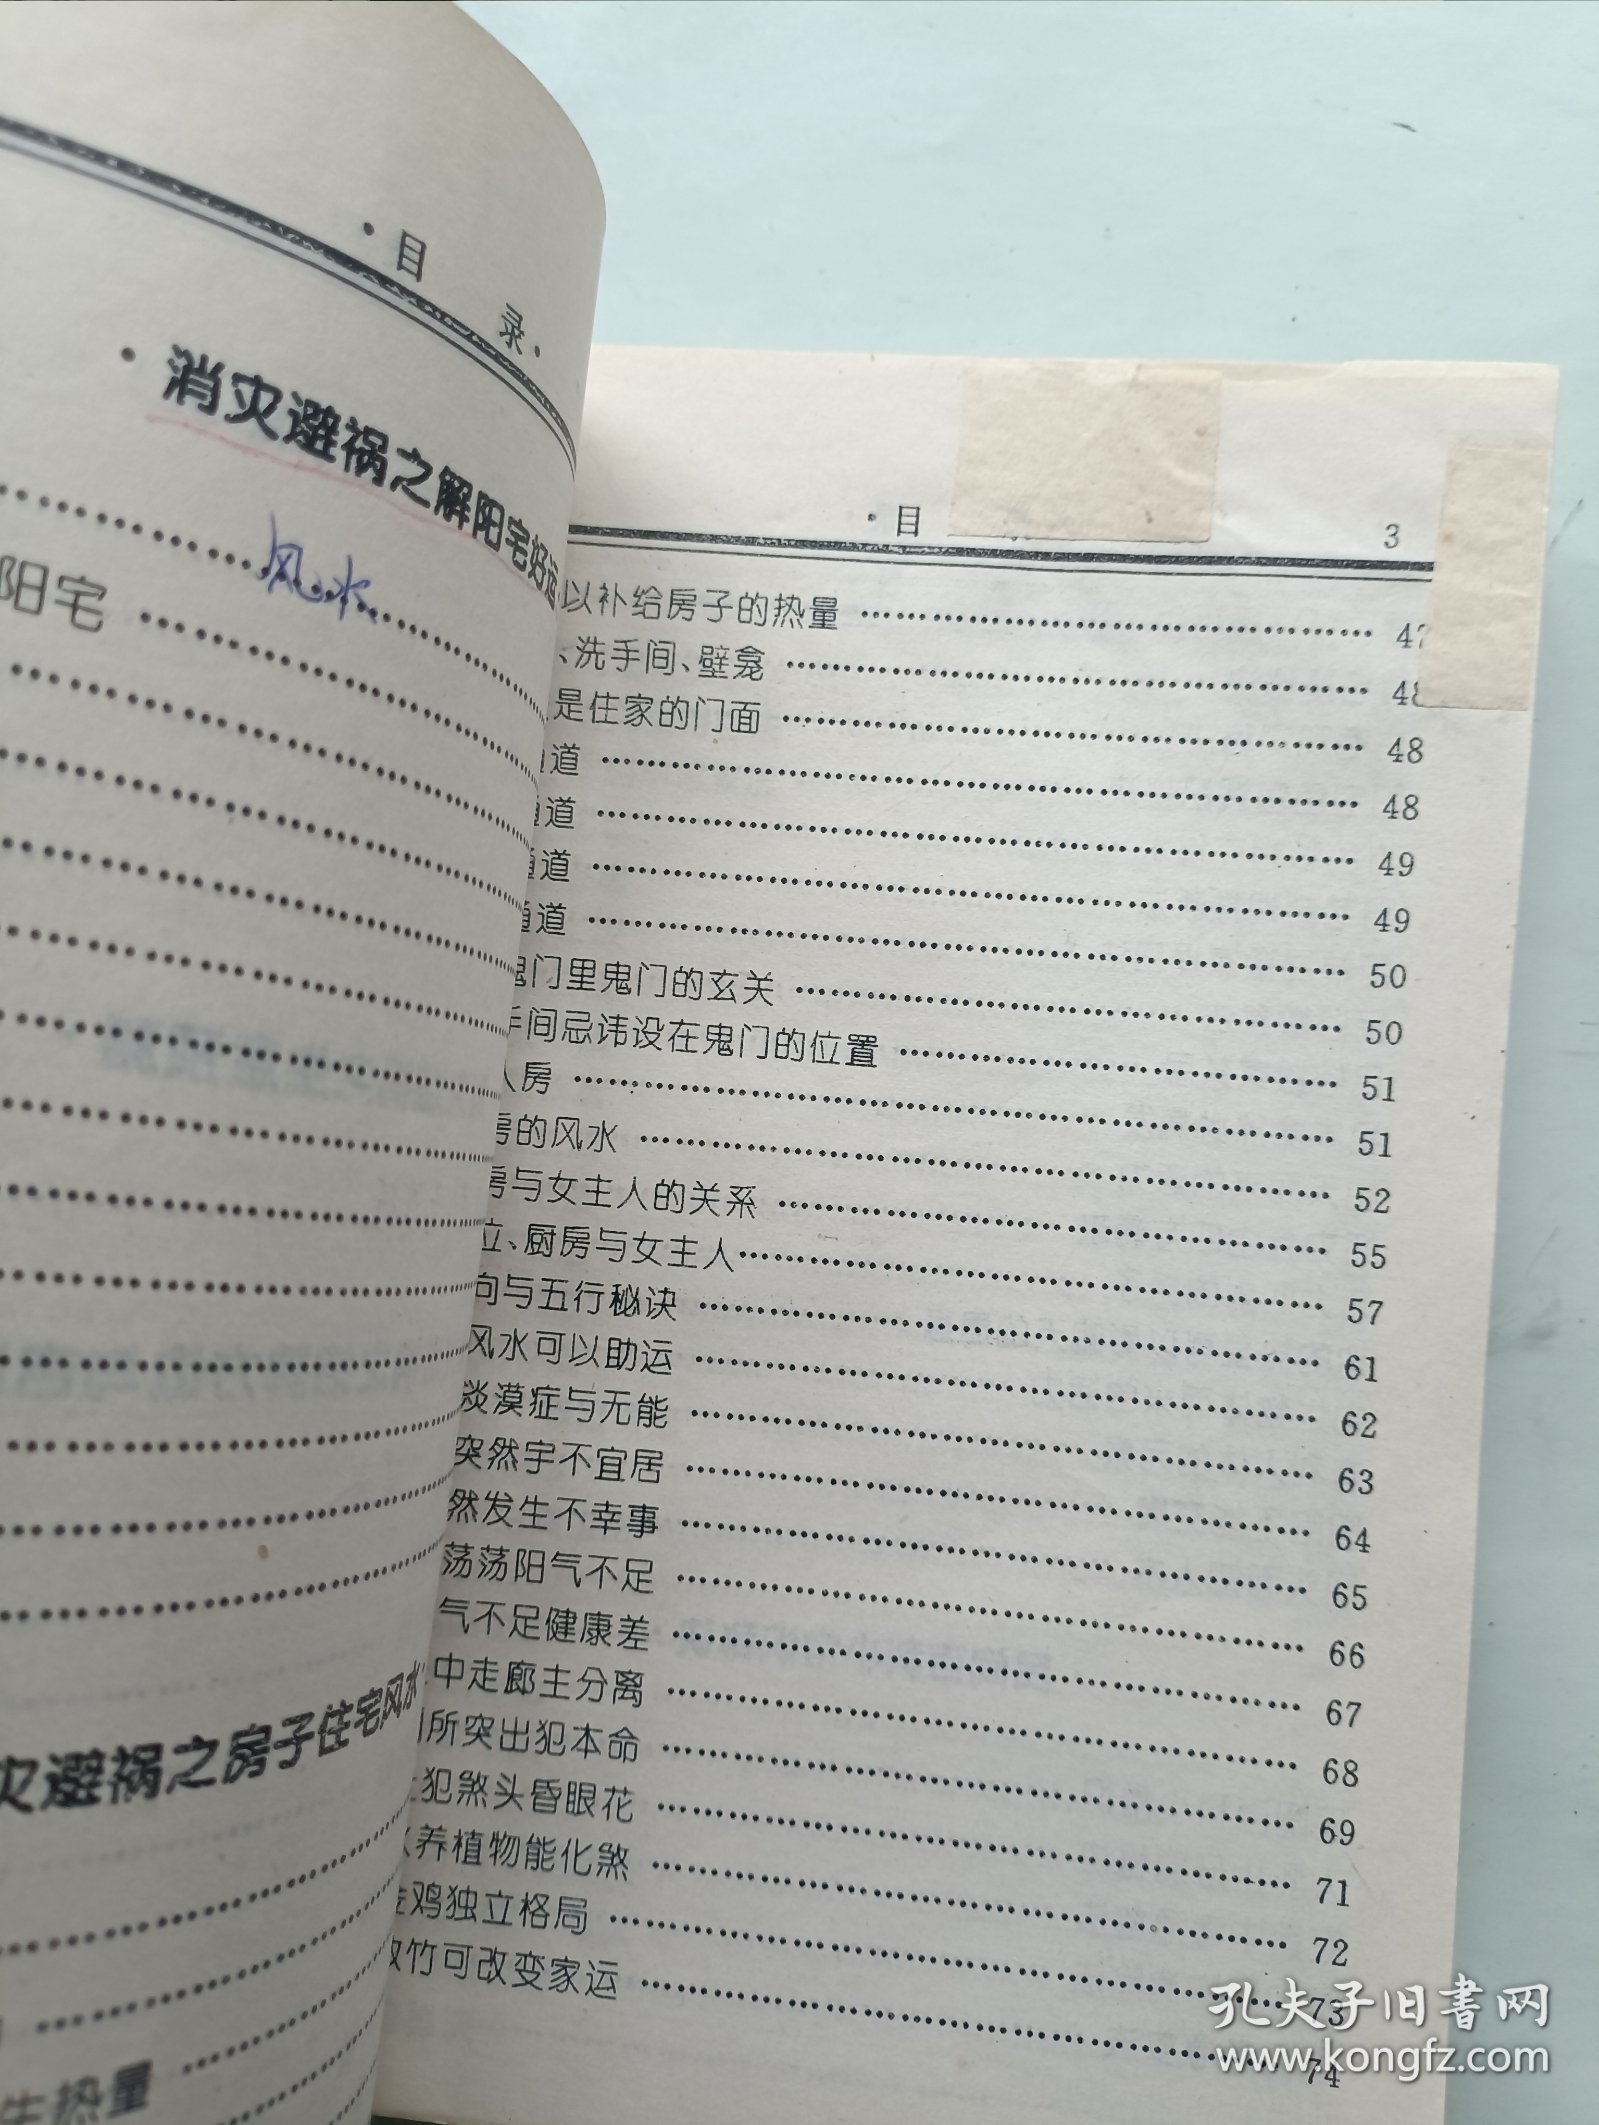 ·目 录·
·消灾避祸之解阳宅好运
风水
阳宅
灾避祸之房子住宅风水
生热量
·目 3
以补给房子的热量 47
、洗手间、壁龛 48
是住家的门面 48
道 48
道 49
通道 49
通道 50
鬼门里鬼门的玄关 50
手间忌讳设在鬼门的位置 51
人房 51
房的风水 52
房与女主人的关系 55
位、厨房与女主人 57
向与五行秘诀 61
风水可以助运 62
淡漠症与无能 63
突然宇不宜居 64
然发生不幸事 65
荡荡阳气不足 66
气不足健康差 67
中走廊主分离 68
所突出犯本命 69
犯煞头昏眼花 71
养植物能化煞 72
鸡独立格局 73
竹可改变家运 74
孔夫子旧书网
www.kongfz.com